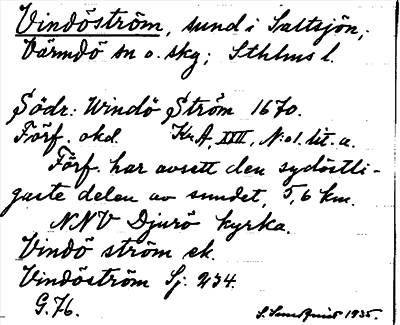 Vindöström, sund i Saltsjön,;
Värmdö sn o. skg; Sthlms l.
Södr: Windö Ström 1670.
Förf. okd. Kr. A. XIII, N:o 1. lit. a.
Förf. har avsett den sydöstli-
gaste delen av sundet, 5,6 km.
NNV Djurö kyrka.
Vindö ström ek.
Vindöström Sj. 234.
G. 76.
1935.